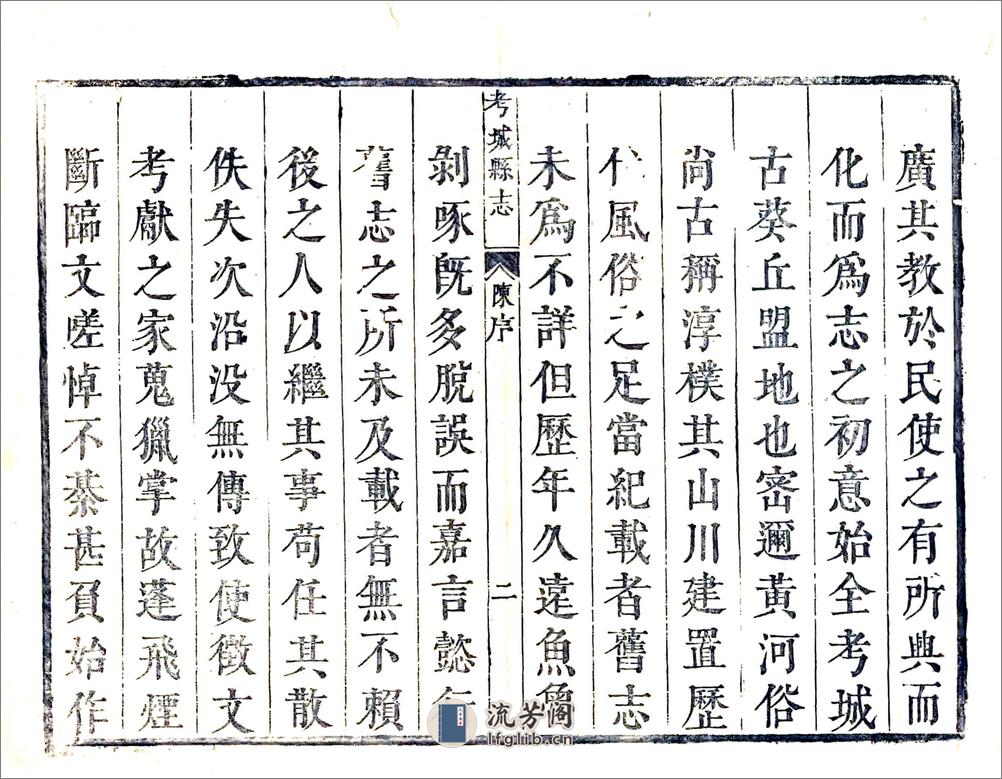 廣其教於民使之有所興而
化而爲志之初意始全考城
古葵丘盟地也密邇黃河俗
尚古稱淳樸其山川建置歷
代風俗之足當紀載者舊志
未爲不詳但歷年久遠魚魯
考城縣志
陳序
二
剝啄旣多脫誤而嘉言懿行
舊志之所未及載者無不賴
後之人以繼其事苟任其散
佚失次沿没無傳致使徵文
考獻之家蒐獵掌故蓬飛煙
斷臨文嗟悼不綦甚負始作
流芳阁
lfglib.cn